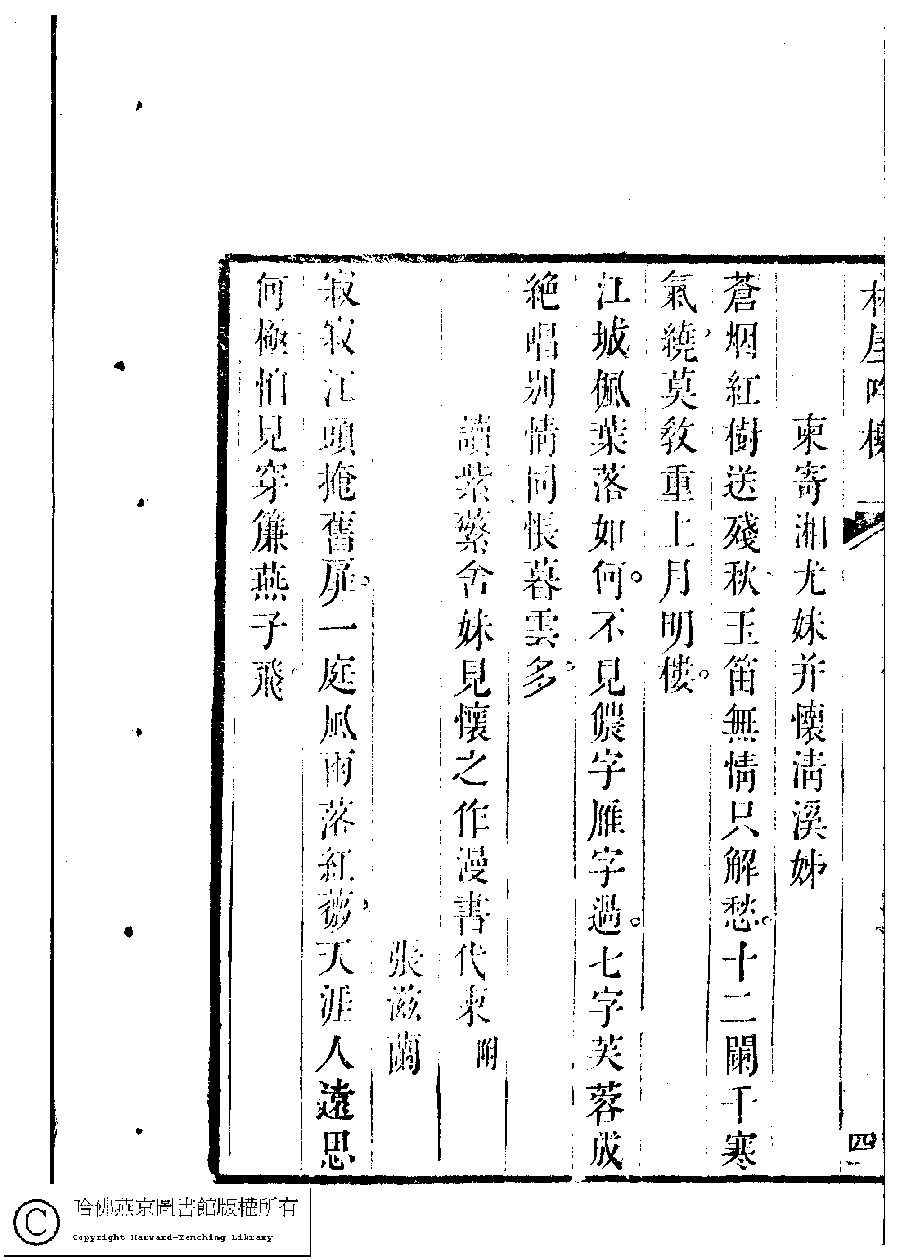 林屋吟榭
四
柬寄湘尤妹并懷清溪姊
蒼烟紅樹送殘秋玉笛無情只解愁。十二闌干寒
氣繞莫敎重上月明樓。
江城佩葉落如何。不見儂字雁字過。七字芙蓉成
絶唱別情同悵暮雲多。
讀紫蘩舍妹見懷之作漫書代柬 附
張滋蘭
寂寂江頭掩舊扉。一庭風雨落紅薇。天涯人遠思
何極怕見穿簾燕子飛。
哈佛燕京圖書館版權所有
Copyright Harvard-Yenching Library